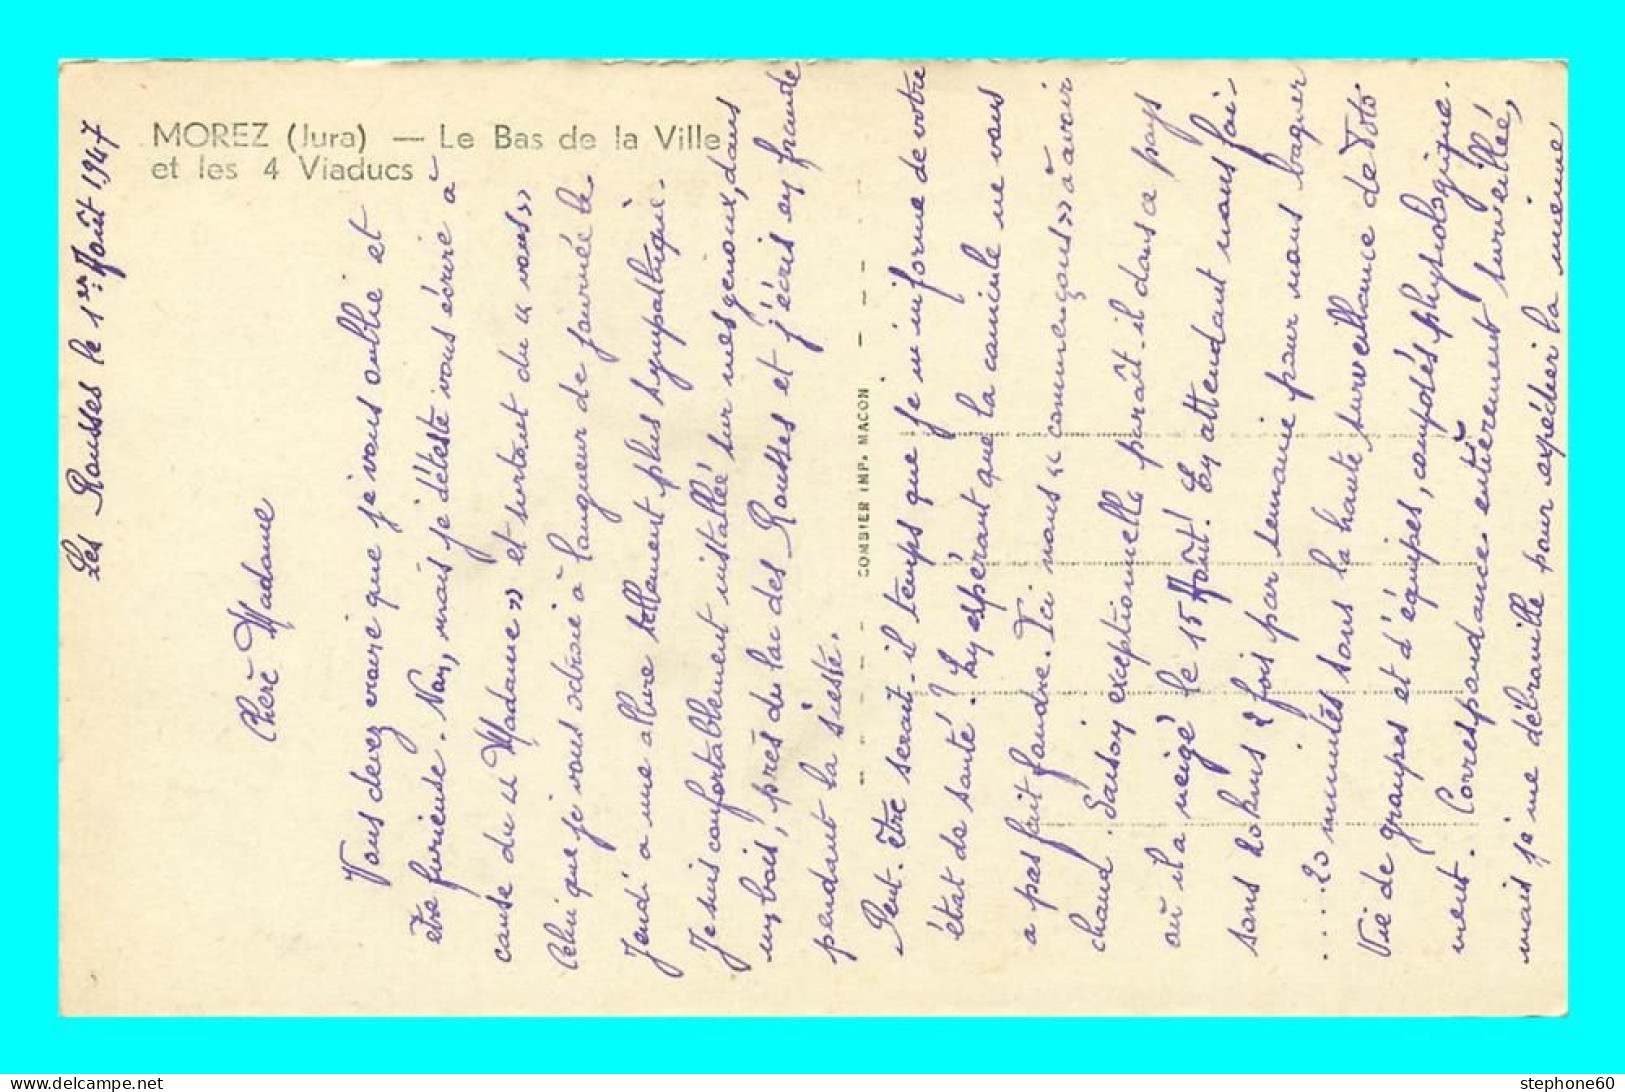 MOREZ (Jura) — Le Bas de la Ville
et les 4 Viaducs
Les Rousses le 1er Août 1947
Chère Madame
Vous devez croire que je vous oublie et
être furieuse. Non, mais je déteste vous écrire à
cause du « Madame » et surtout du « vous »
Celui que je vous octroie à longueur de journée le
Jeudi a une allure tellement plus sympathique.
Je suis confortablement installée sur mes genoux, dans
un bois, près du lac des Rousses et j'écris en fraude
pendant la sieste.
Peut-être serait-il temps que je m'informe de votre
état de santé ? En espérant que la canicule ne vous
a pas fait fondre. Ici nous « commençons » à avoir
chaud. Saison exceptionnelle paraît-il dans ce pays
où il a neigé le 15 Août ! En attendant nous fai-
sons 20 kms 2 fois par semaine pour nous baquer
.... 20 minutes sous la haute surveillance de Toto
Vie de groupes et d'équipes, campés physiologique-
ment. Correspondance entièrement surveillée,
mais je me débrouille pour expédier la mienne
COMBIER IMP. MACON
stephone60